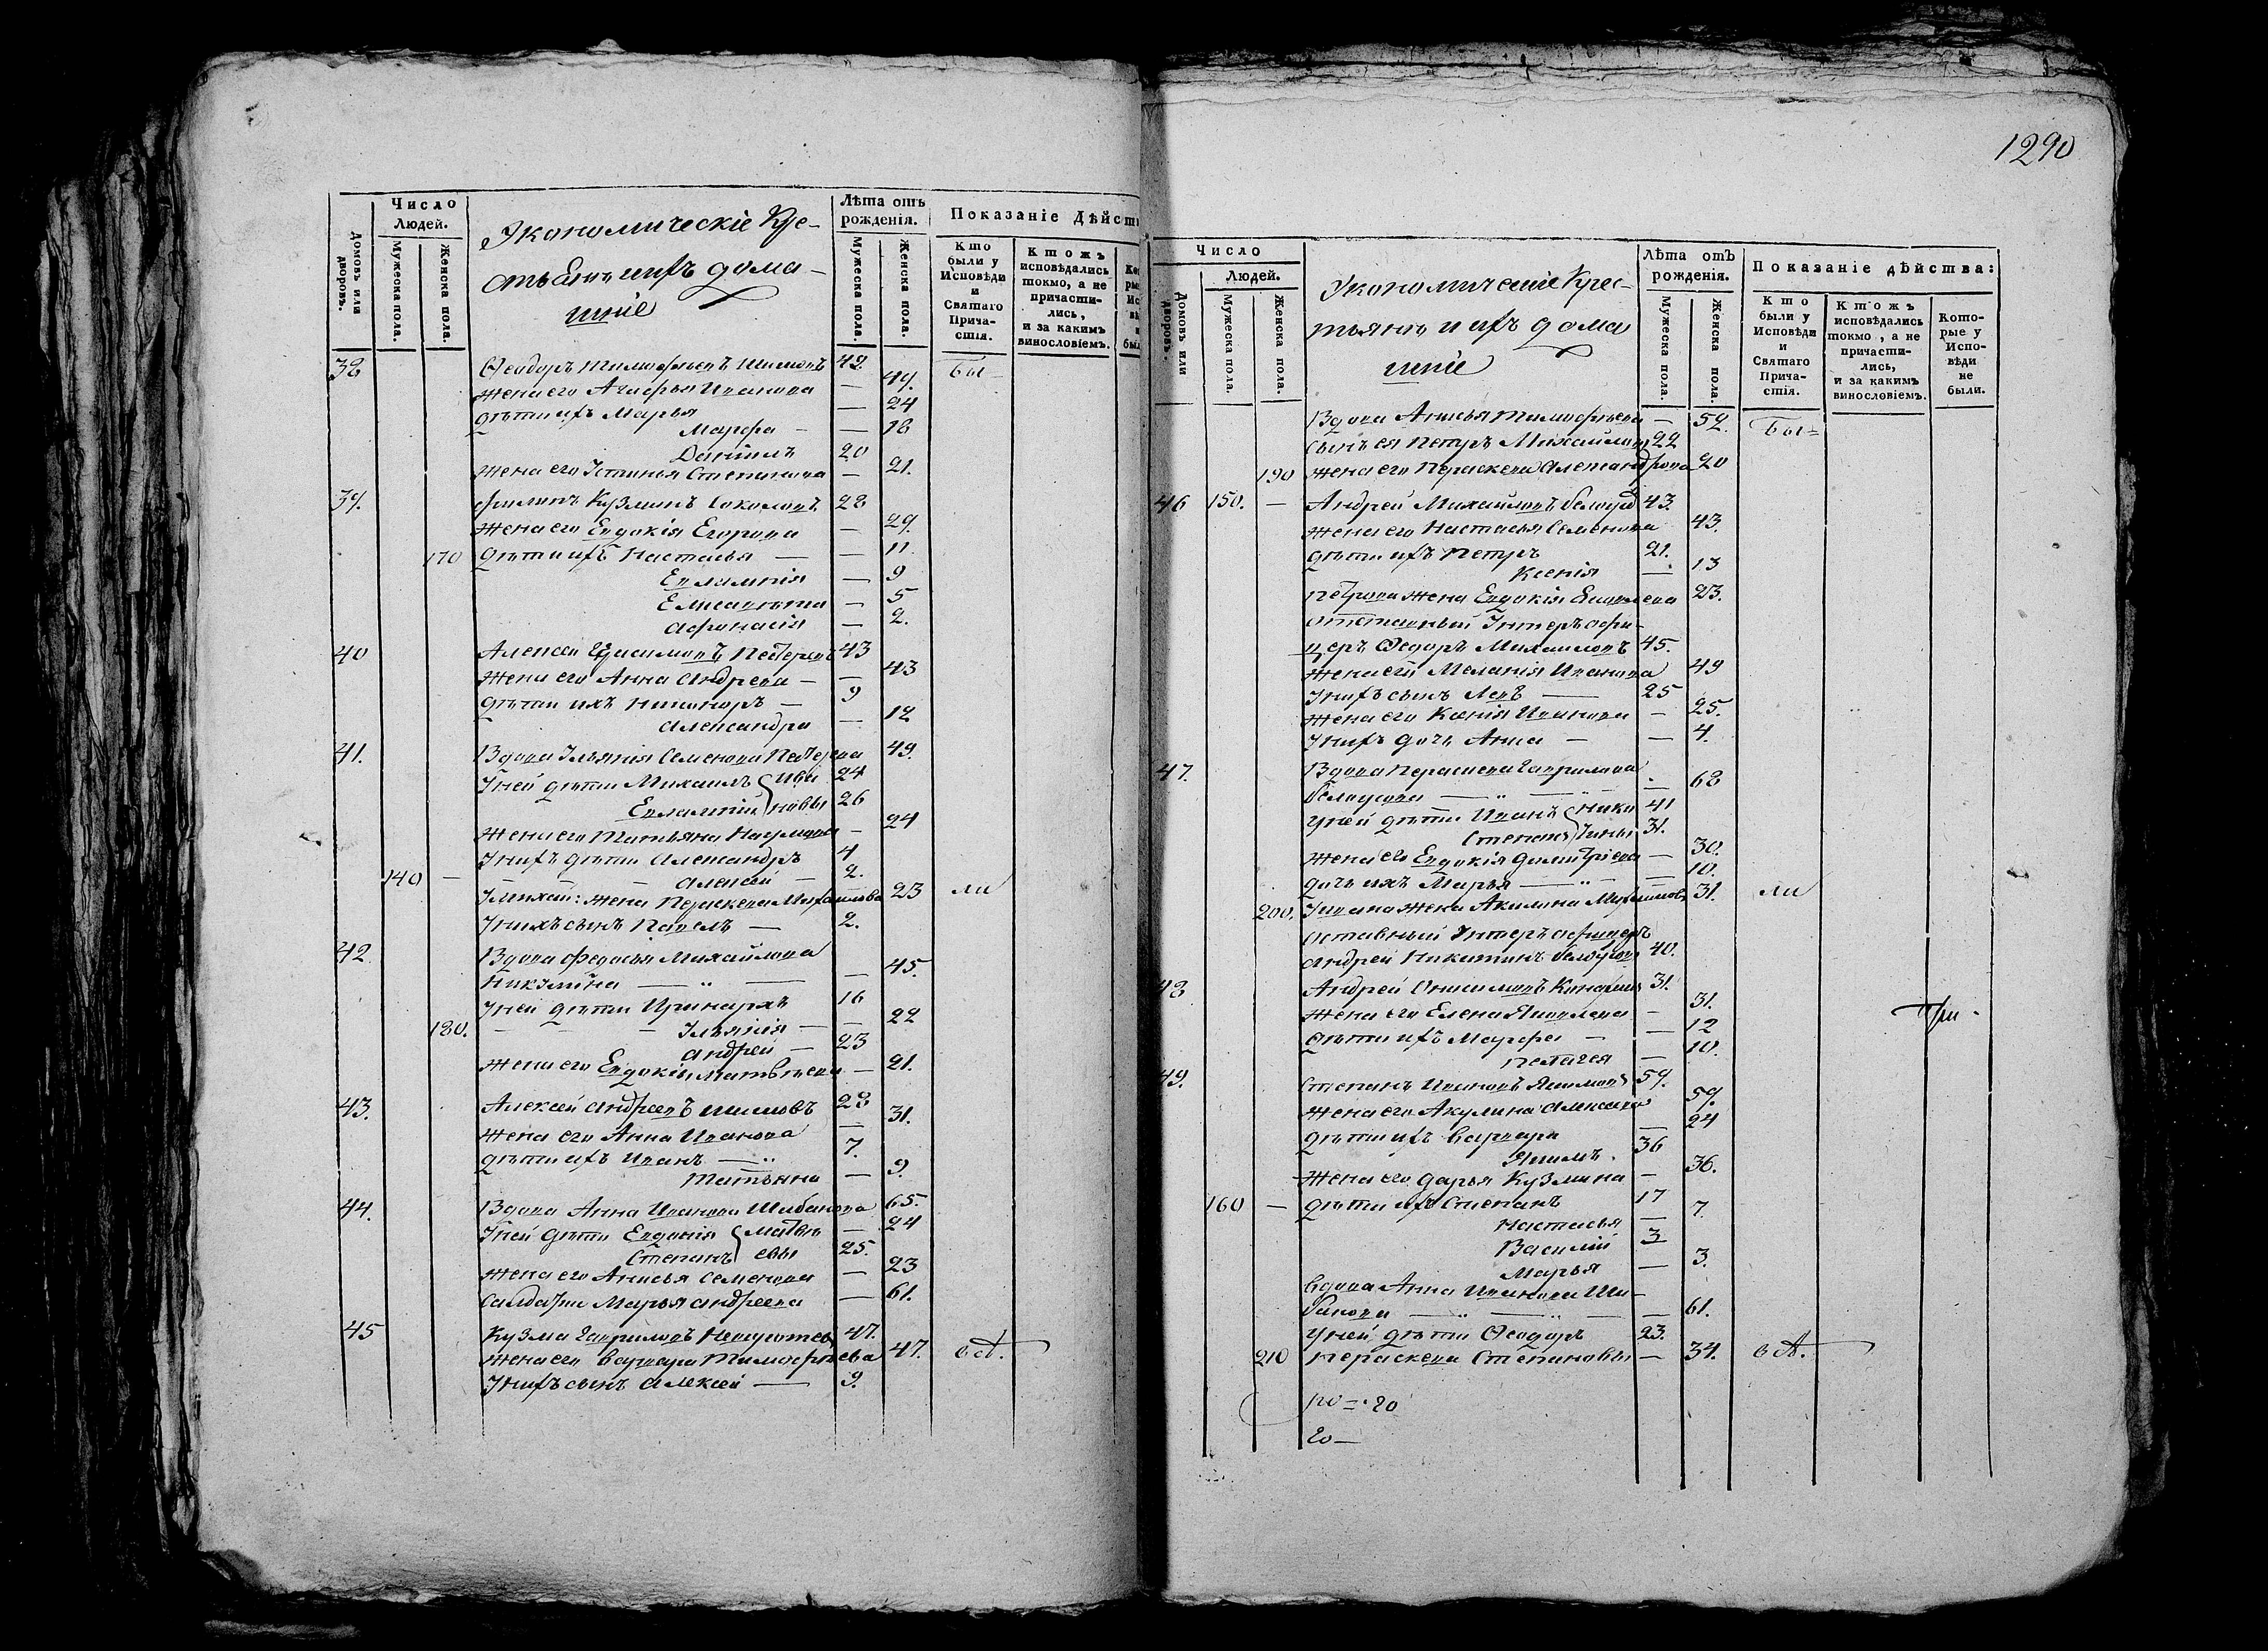 Число
Людей.
Домовъ или дворовъ.
Мужеска пола.
Женска пола.
Экономическіе Кре-
стьянъ ихъ дома-
шніе
Лѣта отъ
рожденія.
Мужеска пола.
Женска пола.
Показаніе Дѣйст
Кто были у Исповѣди и Святаго Прича-стія.
Ктожъ исповѣдались токмо, а не причасти-лись, и за какимъ винословіемъ.
38 Ѳеодоръ Тимофѣевъ Шиловъ 42 Бы
жена его Агафья Иванова — 49.
дѣти ихъ Марья — 24
Марфа — 18
Даніилъ 20
жена его Устинья Степанова — 21.
39. Филипъ Кузминъ Соколовъ 28
жена его Евдокія Егорова — 29.
170 дѣти ихъ Настасья — 11.
Евлампія — 9
Елисавета — 5
Афанасія — 2.
40 Алексеи 43
жена его Анна Андреева — 43
дѣти ихъ Никаноръ — 9
Александра — 12
41. Вдова Ульянія Семенова 49.
У ней дѣти Михаилъ Ива 24
Евлампій новы 26
жена его Татьяна Наумова — 24
У нихъ дѣти Александръ 4
140 — Алексей — 2.
У Михаи: жена Параскева Михаилова 23 ли
У нихъ сынъ Павелъ — 2.
42 Вдова Федосья Михайлова
Никулина — 45.
У ней дѣти Иринархъ 16
180. Ульянія — 22
Андрей — 23
жена его Евдокія Матвѣева — 21.
43. Алексей Андреевъ Шиловъ 28
жена его Анна Иванова — 31.
дѣти ихъ Иванъ — 7.
Татьяна — 9.
44. Вдова Анна Иванова Шибанова 65.
У ней дѣти Евдокія Матвѣ — 24
Степанъ евы 25.
жена его Анисья Семенова — 23
Салдатка Марья Андреева — 61.
45 Кузма Гавриловъ 47.
жена его Варвара Тимофѣева 47. все.
У нихъ сынъ Алексей — 9.
1290
Число
Людей.
Домовъ или дворовъ.
Мужеска пола.
Женска пола.
Экономическіе Крес-
тьянъ и ихъ дома
шніе
Лѣта отъ
рожденія.
Мужеска пола.
Женска пола.
Показаніе дѣйства:
Кто были у Исповѣди и Святаго Прича-стія.
Ктожъ исповѣдались токмо, а не причасти-лись, и за какимъ винословіемъ.
Кото-рые у Испо-вѣди не были.
Вдова Анисья Тимофѣева — 52. Бы=
сынъ ея Петръ Михайловъ 22
190 жена его Параскева Александрова 20
46 150. — Андрей Михайловъ 43.
жена его Настасья Семенова 43.
дѣти ихъ Петръ 21.
Ксенія — 13
Петрова жена Евдокія 23.
отставный Унтеръ офи-
церъ Ѳедоръ Михаиловъ 45.
жена его Меланія Иванова 49
У нихъ сынъ Левъ — 25
жена его Ксенія Иванова — 25.
У нихъ дочь Анна — — 4.
47. Вдова Параскева Гаврилова
Белоусова — — 68
У ней дѣти Иванъ Ники 41
Степанъ тины 31.
жена его Евдокія Димитріева — 30.
дочь ихъ Марья — — 10.
200. Ивана жена Акилина 31. ли
Отставный Унтеръ офицеръ
Андрей Никитинъ Белоусовъ 40.
48 Андрей Онисимовъ 31.
жена его Елена Яковлева — 31. При.
дѣти ихъ Марфа — — 12
Пелагея — 10.
49. Степанъ Ивановъ 59.
жена его Акулина Алексеева 59.
дѣти ихъ Варвара — 24
Якимъ. 36
жена его Дарья Кузмина — 36.
160 — дѣти ихъ Степанъ 17
Настасья — 7.
Василій 3
Марья — 3.
Вдова Анна Иванова Ши-
банова — — 61.
У ней дѣти Ѳеодоръ 23.
210 Параскева Степановы — 34. все.
20
20—